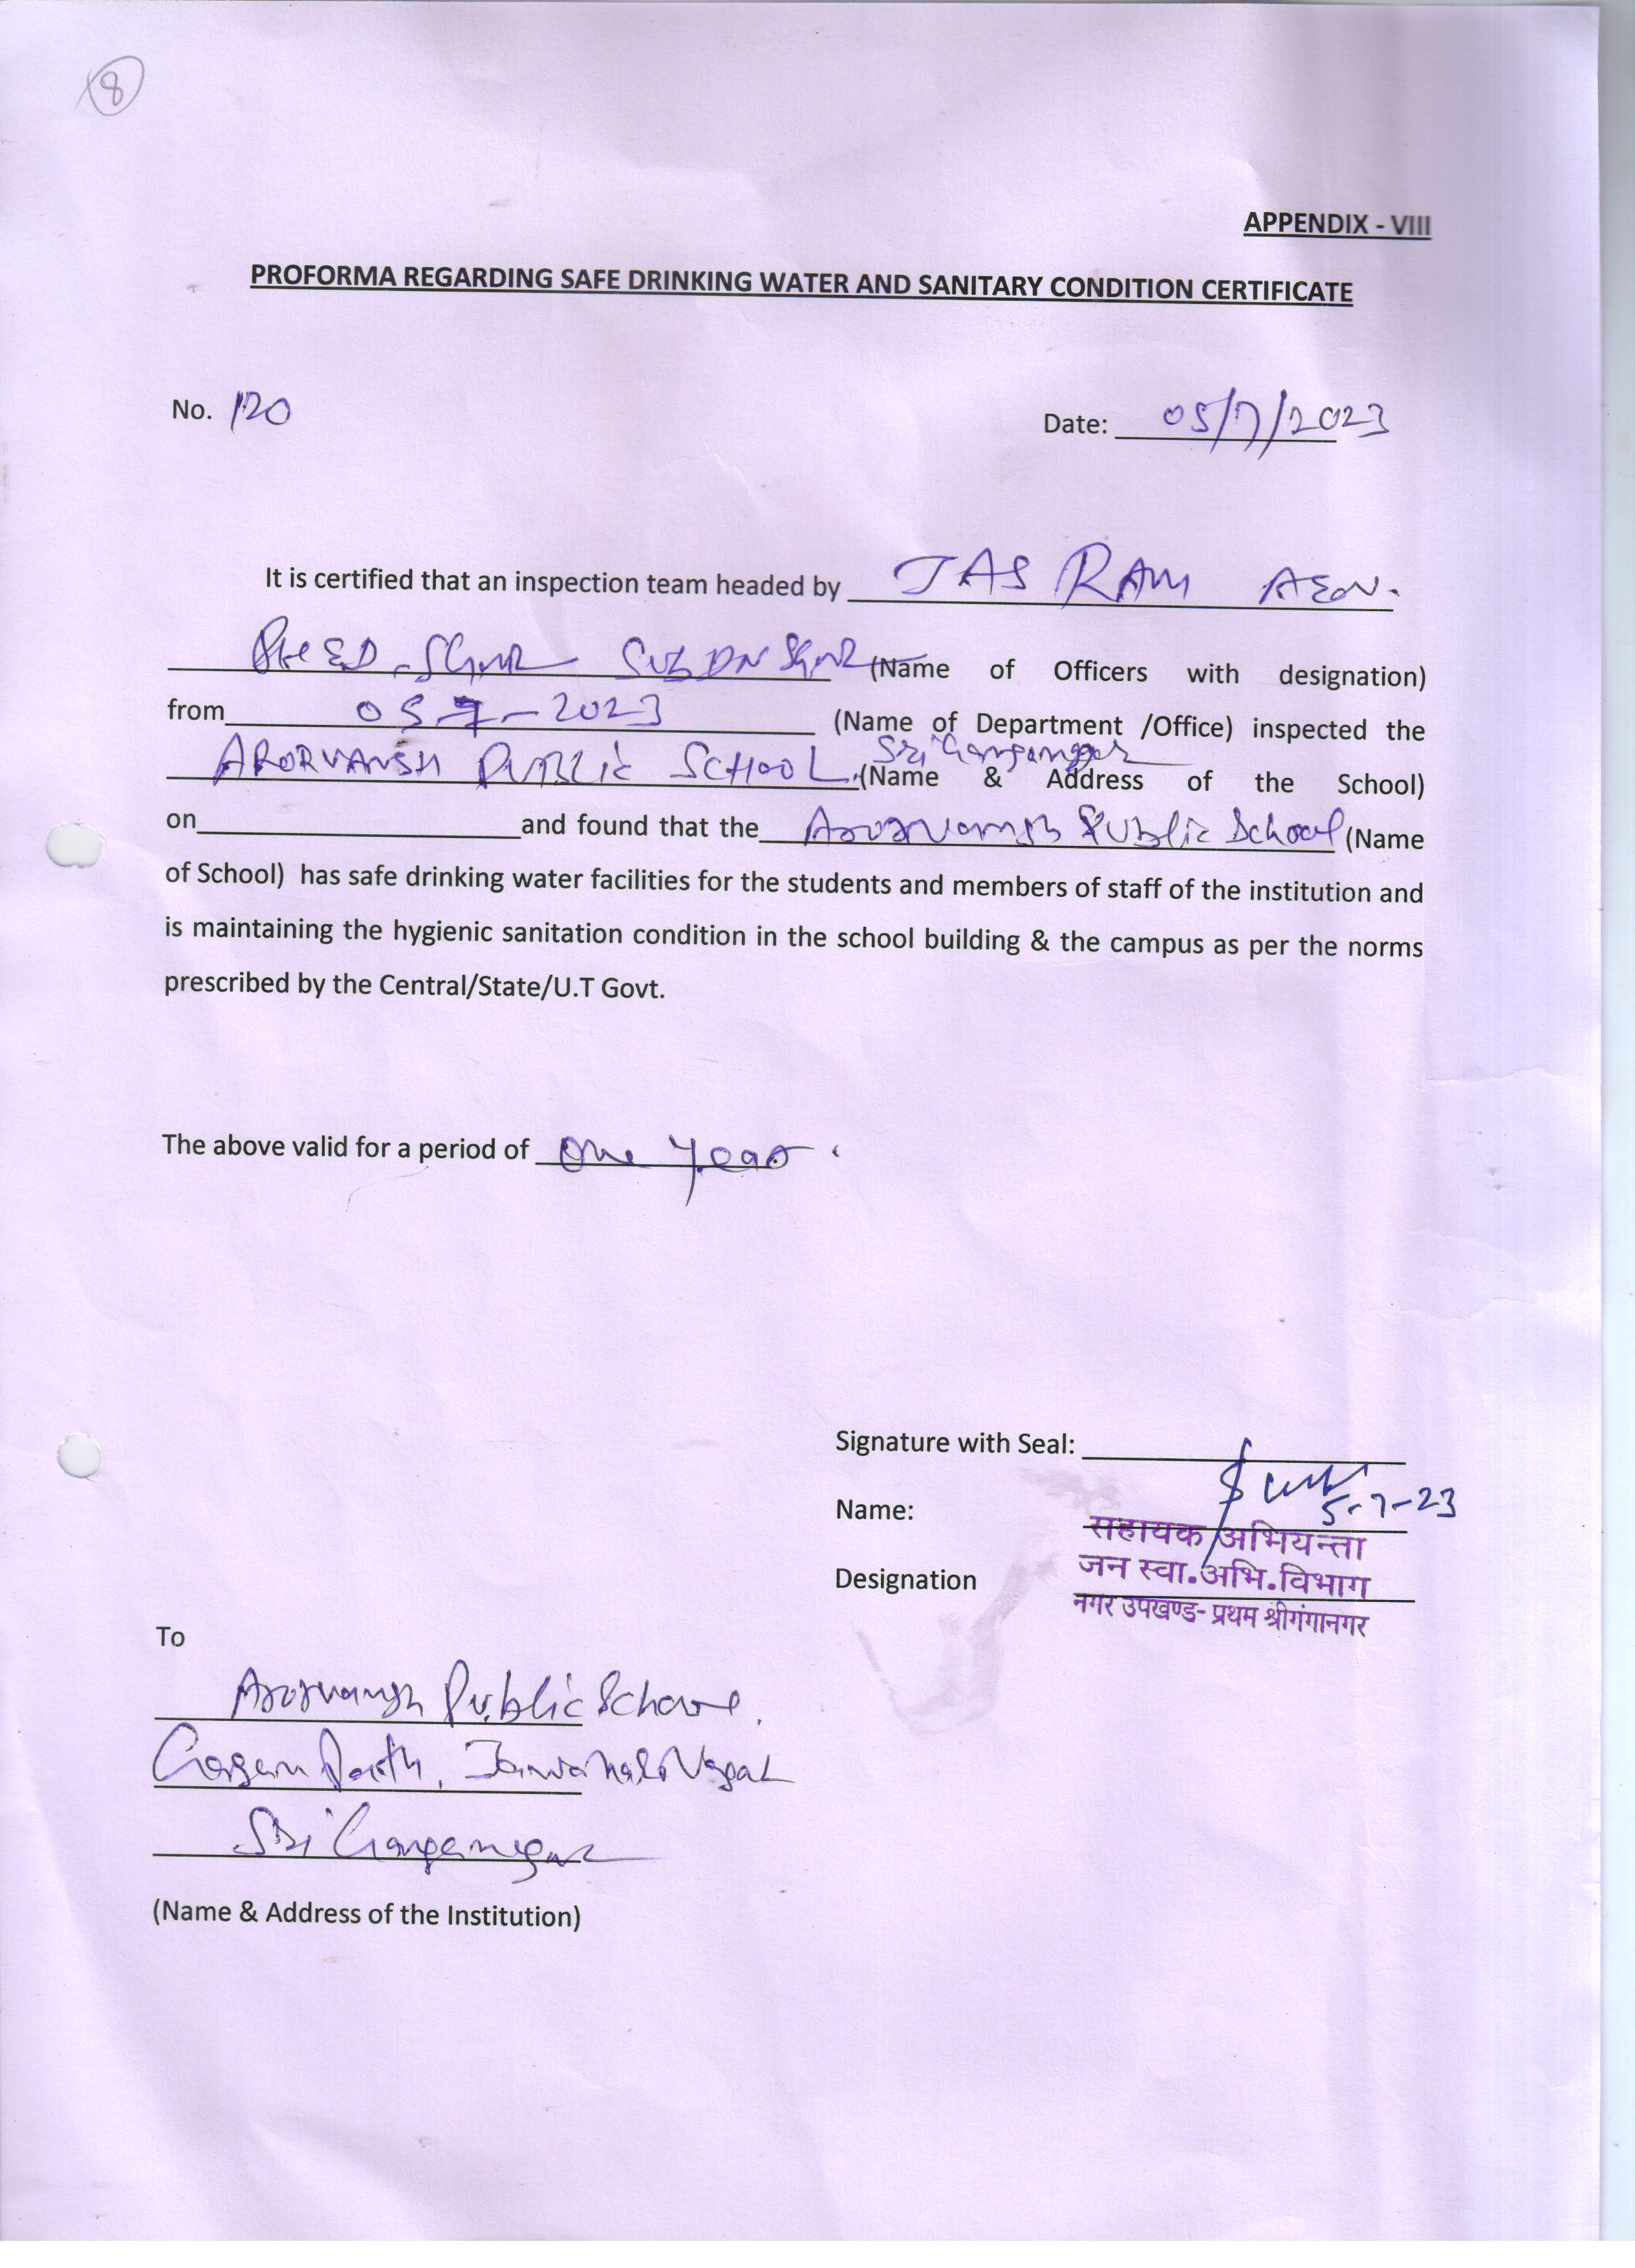 8
APPENDIX - VIII
PROFORMA REGARDING SAFE DRINKING WATER AND SANITARY CONDITION CERTIFICATE
No. 120
Date: 05/7/2023
It is certified that an inspection team headed by JAS RAM AEN.
PHED SGNR SUB DN SGNR (Name of Officers with designation)
from 05-7-2023 (Name of Department /Office) inspected the
ARORVANSH PUBLIC SCHOOL, Sri Ganganagar (Name & Address of the School)
on____________________and found that the Arorvansh Public School (Name
of School) has safe drinking water facilities for the students and members of staff of the institution and
is maintaining the hygienic sanitation condition in the school building & the campus as per the norms
prescribed by the Central/State/U.T Govt.
The above valid for a period of One Year.
Signature with Seal:
5-7-23
Name:
सहायक अभियन्ता
जन स्वा.अभि.विभाग
Designation
नगर उपखण्ड- प्रथम श्रीगंगानगर
To
Arorvansh Public School,
Gagan Path, Jawahar Nagar
Sri Ganganagar
(Name & Address of the Institution)